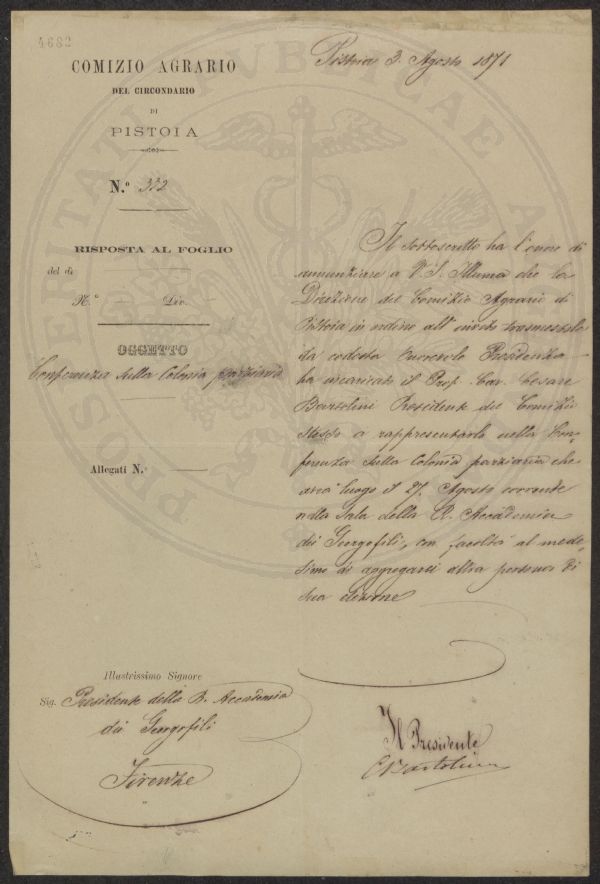 4682
COMIZIO AGRARIO
DEL CIRCONDARIO
DI
PISTOIA
N.o 312
RISPOSTA AL FOGLIO
del dì
N.o Div.
OGGETTO
Conferenza sulla Colonia parziaria
Allegati N.
Pistoia 3. Agosto 1871
Il sottoscritto ha l'onore di
annunziare a V. S. Illuma che la
Direzione del Comizio Agrario di
Pistoia in ordine all' invito trasmessole
da codesta Presidenza
ha incaricato il Prof. Cav. Cesare
Bartolini Presidente del Comizio
stesso a rappresentarlo nella Con-
ferenza sulla Colonia parziaria che
avrà luogo il 27. Agosto corrente
nella Sala della R. Accademia
dei Georgofili, con facoltà al mede-
simo di aggregarsi altra persona di
sua elezione
Illustrissimo Signore
Sig. Presidente della R. Accademia
dei Georgofili
Firenze
Il Presidente
C Bartolini
PROSPERITATI PUBLICAE